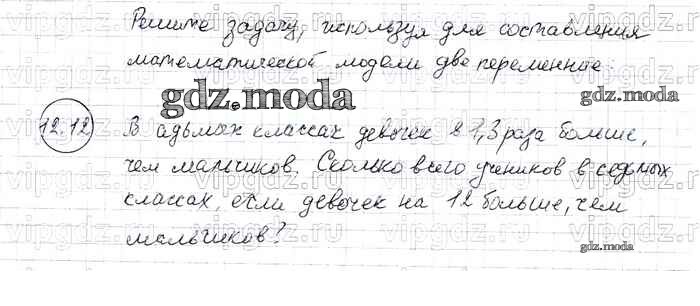 Решите задачу, используя для составления
математической модели две переменные:
gdz.moda
gdz.moda
12.12
В адьмых классах девочек в 1,3 раза больше,
чем мальчиков. Сколько всего учеников в седьмых
классах, если девочек на 12 больше, чем
мальчиков?
gdz.moda
vipgdz.ru vipgdz.ru vipgdz.ru